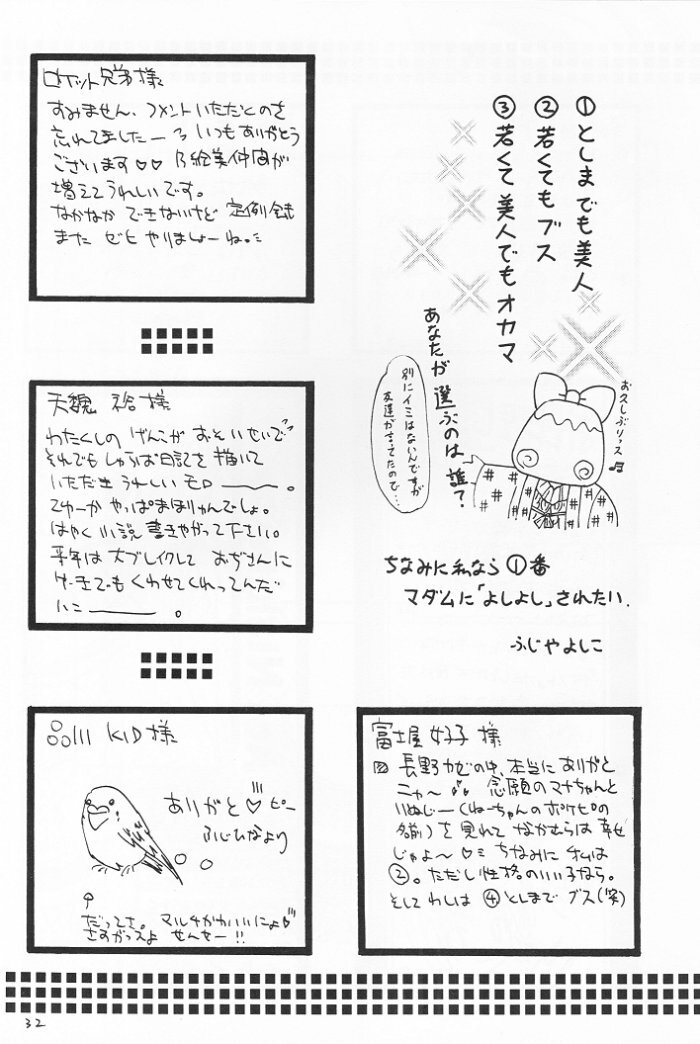 ①としまでも美人
②若くてもブス
③若くて美人でもオカマ
あなたが選ぶのは誰？
別にイミはないんですが
友達が言ってたので…
お久しぶりっス♫
ちなみに私なら①番
マダムに「よしよし」されたい.
ふじやよしこ
ロケット兄弟様
すみません、コメントいただくのを
忘れてましたー いつもありがとう
ございます♡♡ 乃絵美仲間が
増えてうれしいです。
なかなか できないけど 定例会
また ゼヒ やりましょーね。
天魏 裕様
わたくしの げんこが おそいせいで
それでも しゃふお日記を描いて
いただき うれしい モロ――。
てゆーか やっぱ まほりゅんでしょ。
はやく 小説 書きやがって下さい。
来年は大ブレイクして おぢさんに
ケーキでも くわせてくれってんだ
い――。
品川 KID様
ありがと♡ピー
ふじひなより
だってさ。マルチかわいいにょ
さすがっスよ せんせー!!
富士屋 好子 様
長野カゼの中、本当に ありがと
ニャ～ 念願のマナちゃんと
いぬじー(ねーちゃんのポケピの
名前)を 見れて なかむらは 幸せ
じゃよ～♡ ちなみに 私は
②。ただし性格のいい子なら。
そして わしは ④としまで ブス(笑)
32